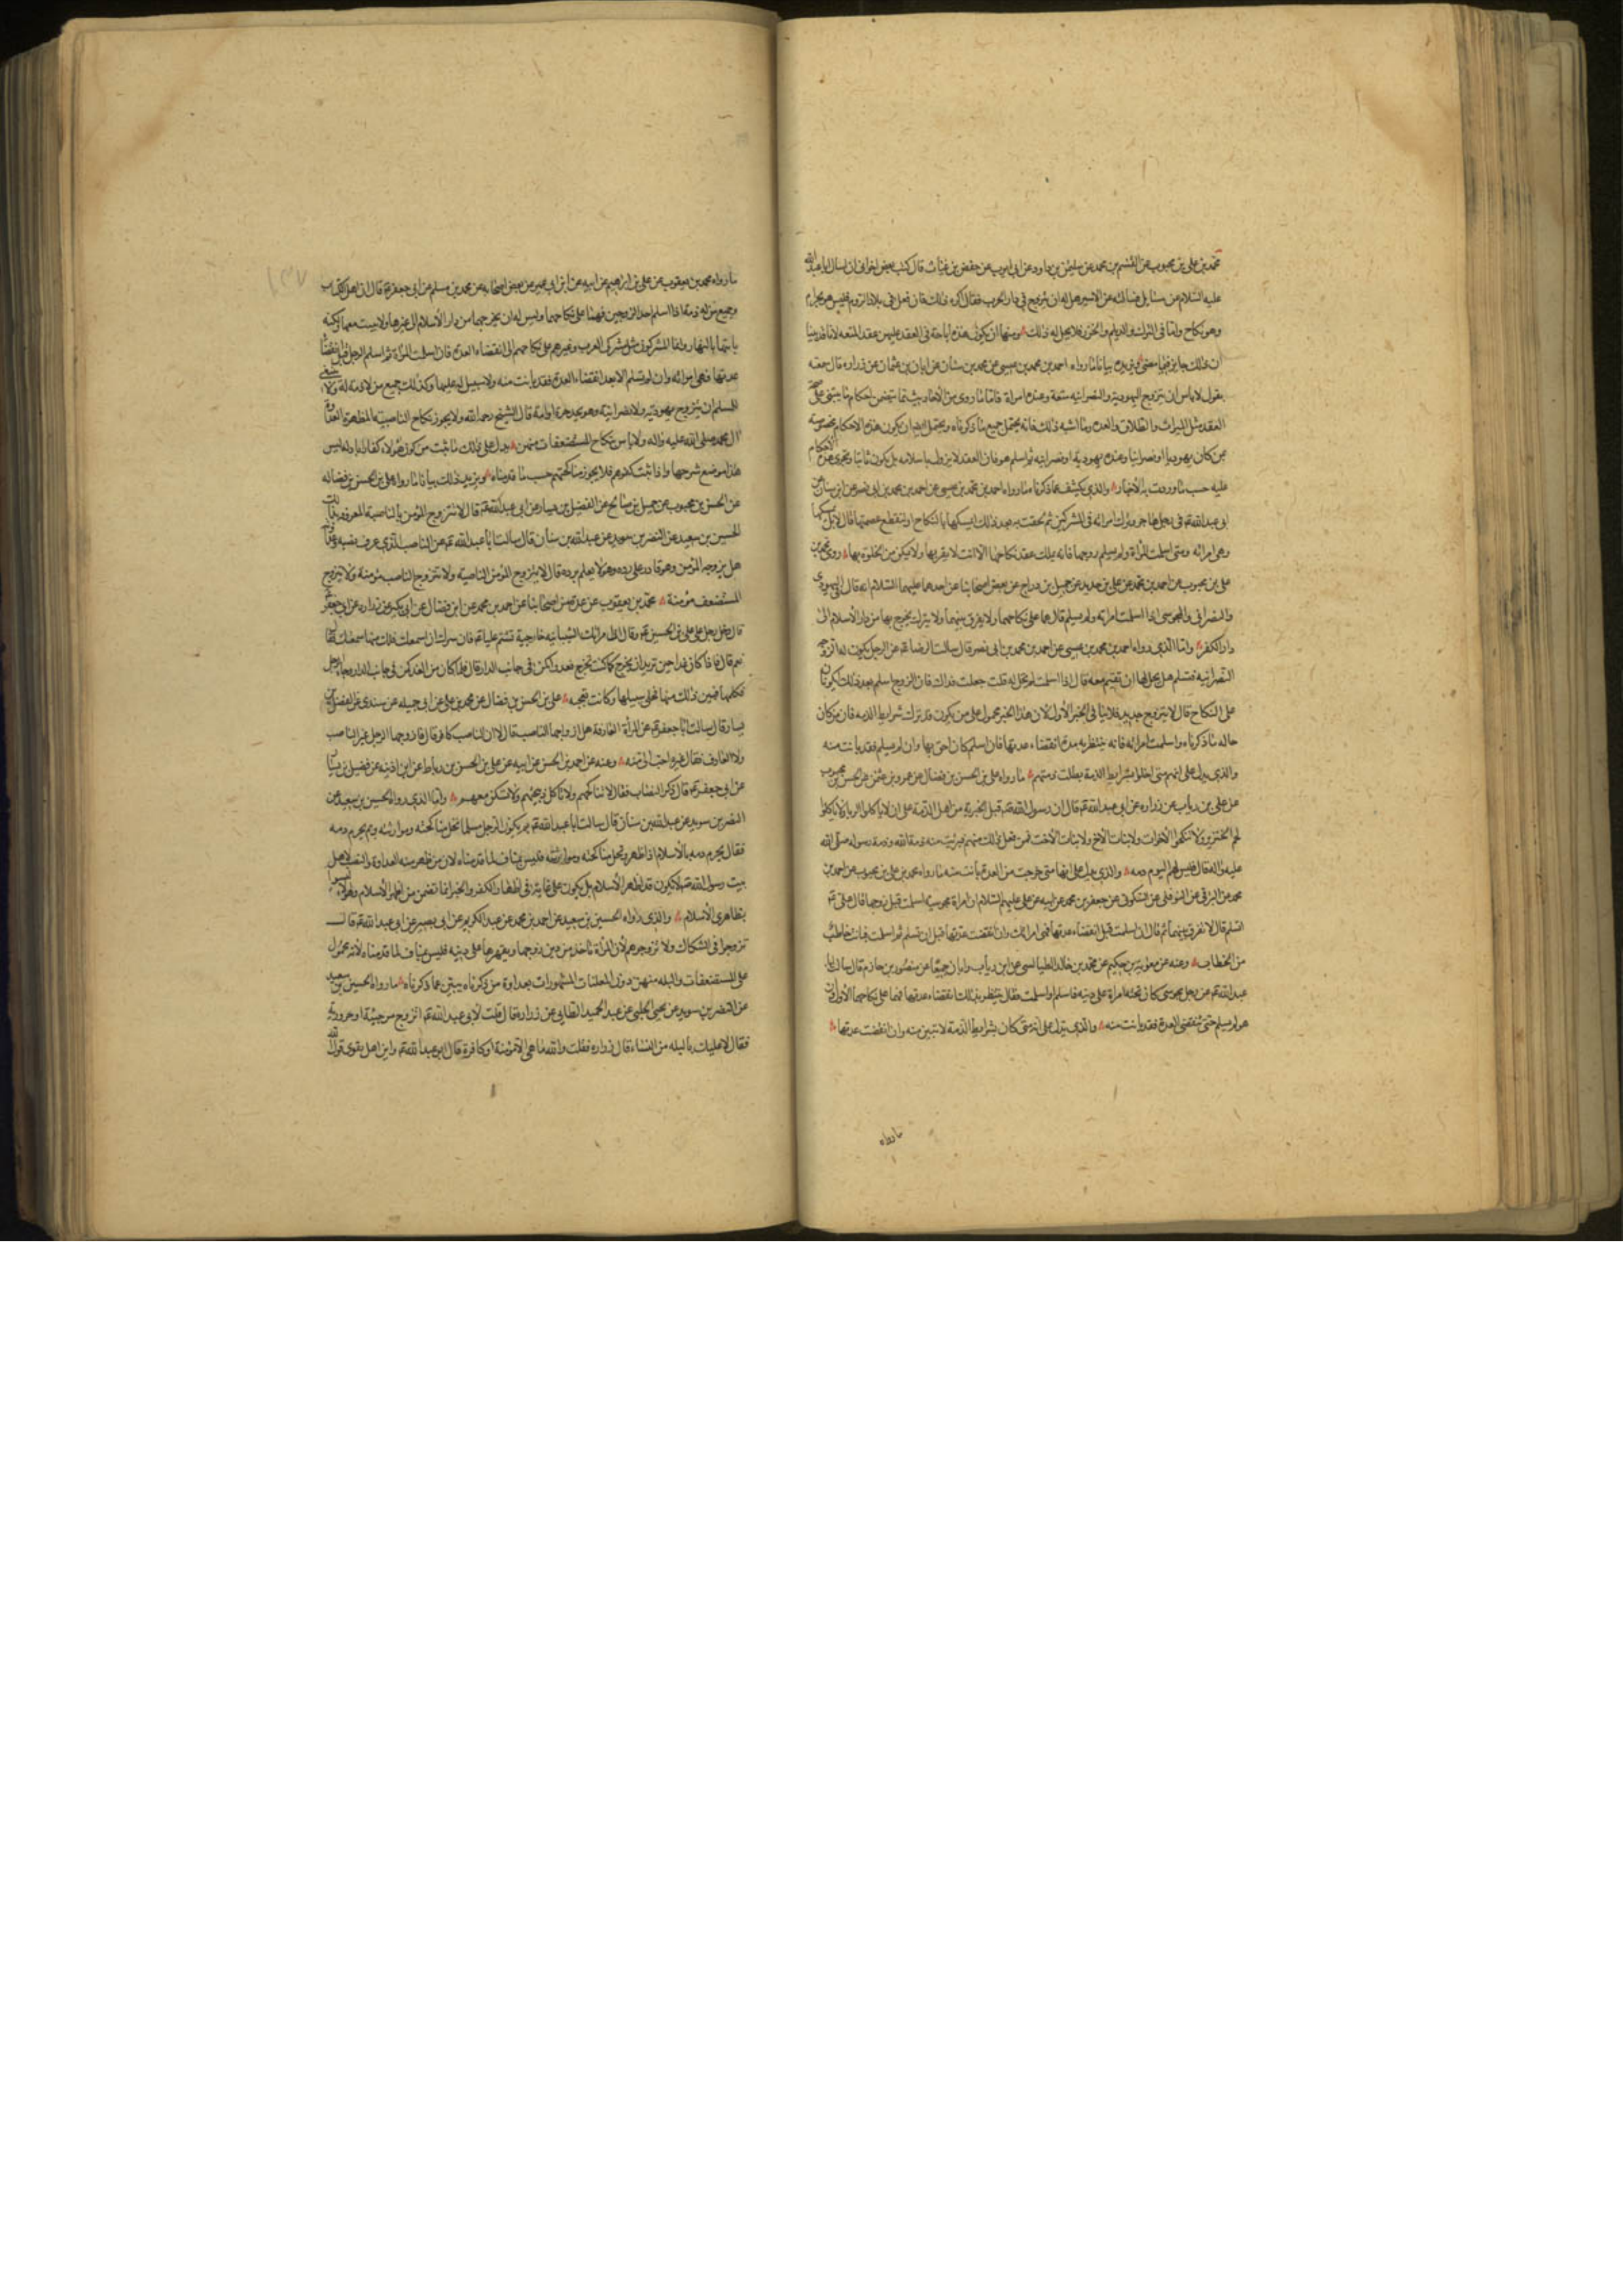 محمد بن علي بن محبوب عن القسم بن محمد عن سليمن بن داود عن ابي ايوب عن حفص بن غياث قال كتب بعض اخواني ان اسال ابا عبد الله
عليه السلام عن مسايل فسالته عن الاسير هل له ان يتزوج في دار الحرب فقال اكره ذلك فان فعل في بلاد الروم فليس هو بحرام
وهو نكاح واما في الترك والديلم والخزر فلا يحل له ذلك ومنها ان يكون هذه اباحة في العقد عليهن عقد المتعه لانا قد بينا
ان ذلك جايز فيما مضى ويزيده بيانا ما رواه احمد بن محمد بن عيسى عن محمد بن سنان عن ابان بن عثمان عن زراره قال سمعته
يقول لا باس ان يتزوج اليهودية والنصرانيه متعة وعنده امراة فاما ما روي من الأخبار يتضمن احكام ما يبتني على صحة
العقد مثل الميراث والطلاق والعده وما اشبه ذلك فانه يحتمل جميع ما ذكرناه ويحتمل ايضا ان يكون هذه الاحكام مخصوصه
بمن كان يهوديا او نصرانيا وعنده يهودية او نصرانيه ثم اسلم هو فان العقد لا يبطل باسلامه بل يكون ثابتا وتجري هذه الاحكام
عليه حسب ما وردت به الأخبار والذي يكشف عما ذكرناه ما رواه احمد بن محمد بن عيسى عن احمد بن محمد بن ابي نصر عن ابن سنان عن
ابي عبد الله ع في رجل هاجر وترك امراته في المشركين ثم لحقت به بعد ذلك ايمسكها بالنكاح او تنقطع عصمتها قال لا بل يمسكها
وهي امراته ومتى اسلمت المراة ولم يسلم زوجها فانه يملك عقد نكاحها الا انه لا يقربها ولا يمكن من الخلوة بها روى محمد بن
علي بن محبوب عن احمد بن محمد عن علي بن حديد عن جميل بن دراج عن بعض اصحابنا عن احدهما عليهما السلام انه قال في اليهودي
والنصراني والمجوسي اذا اسلمت امراته ولم يسلم قال هما على نكاحهما ولا يفرق بينهما ولا يترك يخرج بها من دار الأسلام الى
دار الكفر واما الذي رواه احمد بن محمد بن عيسى عن احمد بن محمد بن ابي نصر قال سالت الرضا ع عن الرجل يكون له الزوجه
النصرانيه فتسلم هل يحل لها ان تقيم معه قال اذا اسلمت لم تحل له قلت جعلت فداك فان الزوج اسلم بعد ذلك ايكونان
على النكاح قال لا يتزوج جديد فلا ينافي الخبر الأول لأن هذا الخبر محمول على من يكون قد ترك شرايط الذمه فان من كان
حاله ما ذكرناه واسلمت امراته فانه ينتظر به مدة انقضاء عدتها فان اسلم كان احق بها وان لم يسلم فقد بانت منه
والذي يدل على انهم متى اخلوا بشرايط الذمة بطلت ذمتهم ما رواه علي بن الحسن بن فضال عن عمرو بن عثمن عن الحسن بن محبوب
عن علي بن رياب عن زراره عن ابي عبد الله ع قال ان رسول الله ص قبل الجزية من اهل الذمة على ان لا ياكلوا الربا ولا ياكلوا
لحم الخنزير ولا ينكحوا الأخوات ولا بنات الأخ ولا بنات الأخت فمن فعل ذلك منهم فبرئت منه ذمة الله وذمة رسوله صلى الله
عليه واله قال فليس لهم اليوم ذمه والذي يدل على انها متى خرجت من العدة بانت منه ما رواه محمد بن علي بن محبوب عن احمد بن
محمد عن البرقي عن النوفلي عن السكوني عن جعفر بن محمد عن ابيه عن علي عليهم السلام ان امراة مجوسية اسلمت قبل زوجها قال علي ع
اتسلم قال لا ففرق بينهما ثم قال ان اسلمت قبل انقضاء عدتها فهي امراتك وان انقضت عدتها قبل ان تسلم ثم اسلمت فانت خاطب
من الخطاب وعنه عن معوية بن حكيم عن محمد بن خالد الطيالسي عن ابن رياب وابان جميعا عن منصور بن حازم قال سالت ابا
عبد الله ع عن رجل مجوسي كانت تحته امراة على دينه فاسلم او اسلمت فقال ينتظر بذلك انقضاء عدتها فهما على نكاحهما الأول وان
هو لم يسلم حتى تنقضي العدة فقد بانت منه والذي يدل على انه متى كان بشرايط الذمة لا تبين منه وان انقضت عدتها
ما رواه
١٣٧
ما رواه محمد بن يعقوب عن علي بن ابرهيم عن ابيه عن ابن ابي عمير عن بعض اصحابه عن محمد بن مسلم عن ابي جعفر ع قال ان اهل الكتاب
وجميع من له ذمة اذا اسلم احد الزوجين فهما على نكاحهما وليس له ان يخرجها من دار الأسلام الى غيرها ولا يبيت معها ولكنه
ياتيها بالنهار واما المشركون مثل مشركي العرب وغيرهم فهم على نكاحهم الى انقضاء العدة فان اسلمت المراة ثم اسلم الرجل قبل انقضاء
عدتها فهي امراته وان لم يسلم الا بعد انقضاء العدة فقد بانت منه ولا سبيل له عليها وكذلك جميع من لا ذمة له ولا ينبغي
للمسلم ان يتزوج يهودية ولا نصرانية وهو يجد حرة او امة قال الشيخ رحمه الله ولا يجوز نكاح الناصبية المظهرة لعداوة
ال محمد صلى الله عليه واله ولا باس بنكاح المستضعفات منهن يدل على ذلك ما ثبت من كون هؤلاء كفارا بادلة ليس
هذا موضع شرحها واذا ثبت كفرهم فلا يجوز مناكحتهم حسب ما قدمناه ويزيد ذلك بيانا ما رواه علي بن الحسن بن فضاله
عن الحسن بن محبوب عن جميل بن صالح عن الفضيل بن يسار عن ابي عبد الله ع قال لا يتزوج المؤمن بالناصبة المعروفه بذلك
الحسين بن سعيد عن النضر بن سويد عن عبد الله بن سنان قال سالت ابا عبد الله ع عن الناصب الذي عرف نصبه وعداوته
هل يزوجه المؤمن وهو قادر على رده وهو لا يعلم برده قال لا يتزوج المؤمن الناصبة ولا يتزوج الناصب مؤمنة ولا يتزوج
المستضعف مؤمنة محمد بن يعقوب عن عدة من اصحابنا عن احمد بن محمد عن ابن فضال عن ابن بكير عن زراره عن ابي جعفر
قال دخل رجل على علي بن الحسين ع وقال ان امراتك الشيبانيه خارجية تشتم عليا ع فان سرك ان اسمعك ذلك منها اسمعتك قال
نعم قال فاذا كان غدا حين تريد ان تخرج كما كنت تخرج فعد واكمن في جانب الدار قال فلما كان من الغد كمن في جانب الدار وجاء الرجل
فكلمها فتبين ذلك منها فخلى سبيلها وكانت تعجبه علي بن الحسن بن فضال عن محمد بن علي عن ابي جميله عن سندي عن الفضيل بن
يسار قال سالت ابا جعفر ع عن المرأة العارفة هل ازوجها الناصب قال لا ان الناصب كافر قال فازوجها الرجل غير الناصب
ولا العارف فقال غيره احب الي منه وعنه عن احمد بن الحسن عن ابيه عن علي بن الحسن بن رباط عن ابن اذينه عن فضيل بن يسار
عن ابي جعفر ع قال ذكر النصاب فقال لا تناكحهم ولا تاكل ذبيحتهم ولا تسكن معهم واما الذي رواه الحسين بن سعيد عن
النضر بن سويد عن عبد الله بن سنان قال سالت ابا عبد الله ع بم يكون الرجل مسلما تحل مناكحته وموارثته وبم يحرم دمه
فقال يحرم دمه بالأسلام اذا ظهر وتحل مناكحته وموارثته فليس بمناف لما قدمناه لان من ظهر منه العداوة والنصب لاهل
بيت رسول الله ص لا يكون قد اظهر الأسلام بل يكون على غاية في اظهار الكفر والخبر انما تضمن من اظهر الأسلام وهؤلاء ليسوا
بظاهري الأسلام والذي رواه الحسين بن سعيد عن احمد بن محمد عن عبد الكريم عن ابي بصير عن ابي عبد الله ع قال
تزوجوا في الشكاك ولا تزوجوهم لأن المراة تاخذ من دين زوجها ويقهرها على دينه فليس مناف لما قدمناه لأنه محمول
على المستضعفات والبله منهن دون المعلنات المشهورات بعداوة من ذكرناه يبين عما ذكرناه ما رواه الحسين بن سعيد
عن النضر بن سويد عن يحيى الحلبي عن عبد الحميد الطايي عن زراره قال قلت لأبي عبد الله ع اتزوج مرجئية او حرورية
فقال لا عليك بالبله من النساء قال زراره فقلت والله ما هي الا مؤمنة او كافرة قال ابو عبد الله ع واين اهل تقوى قول الله